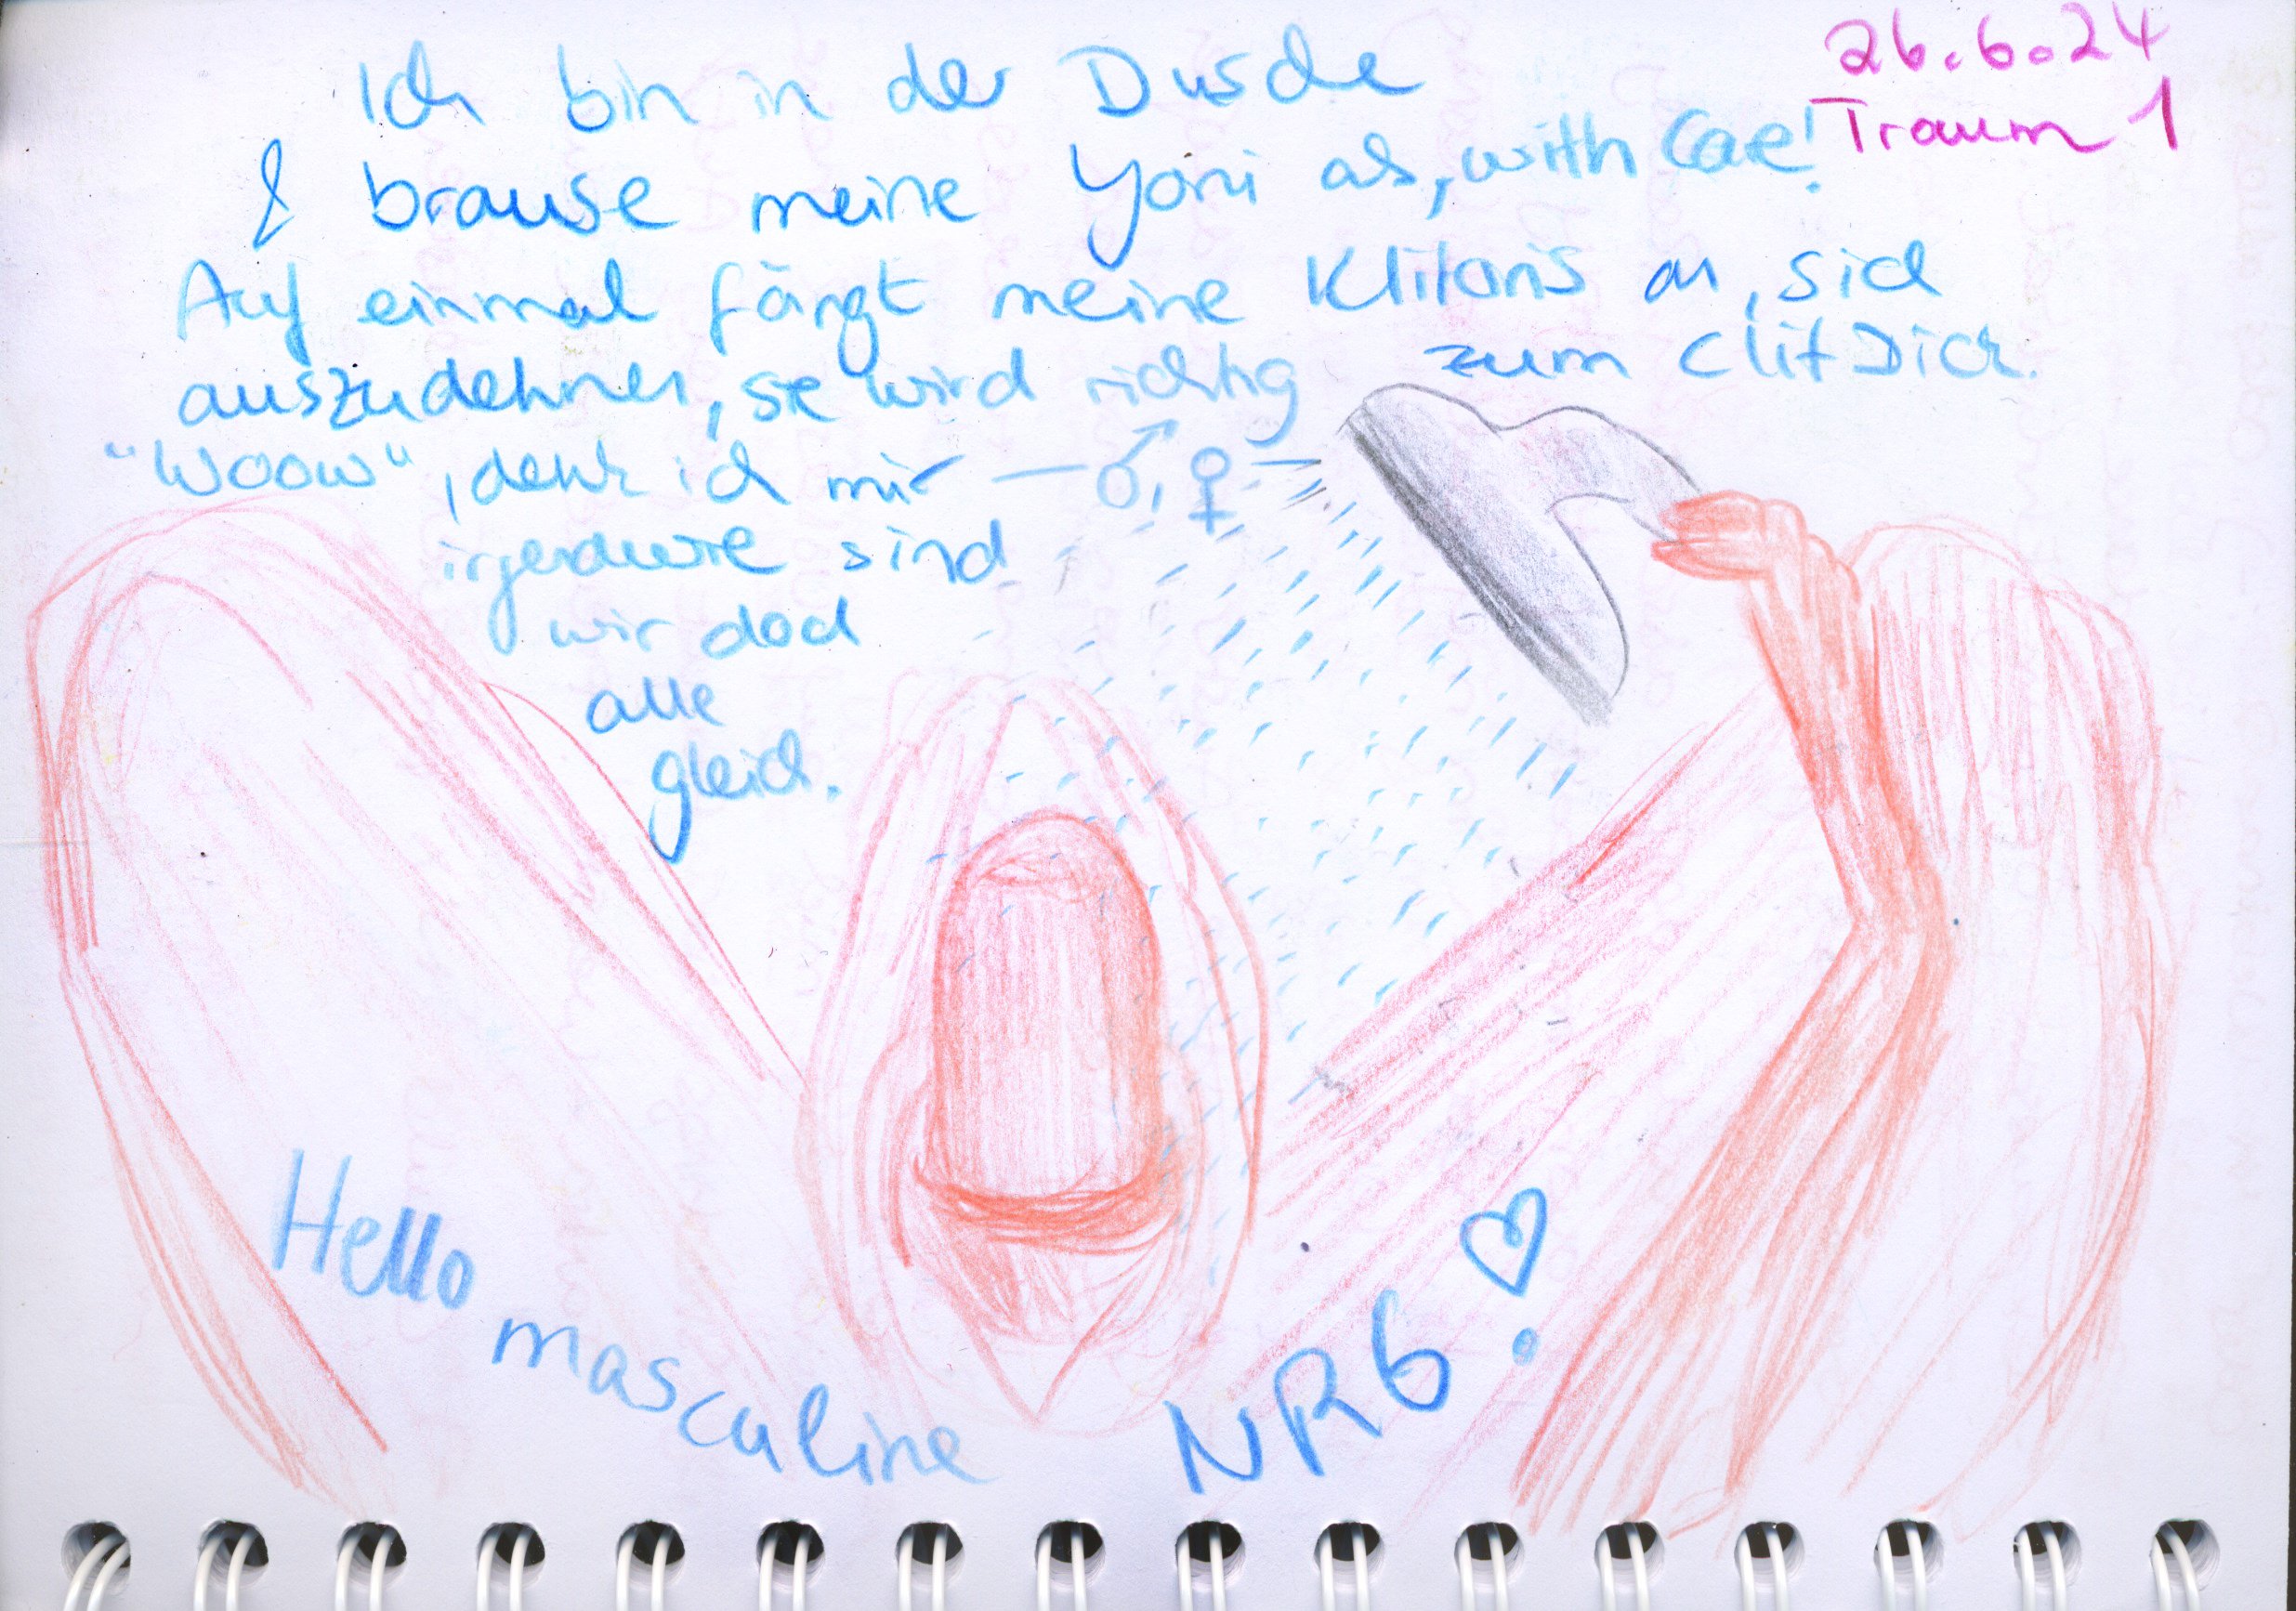 26.6.24
Traum 1
Ich bin in der Dusche
& brause meine Yoni ab, with Care!
Auf einmal fängt meine Klitoris an, sich
auszudehnen, sie wird richtig zum Clit Dick.
"Woow", denk ich mir – ♂, ♀ –
irgendwie sind
wir doch
alle
gleich.
Hello masculine NR6!♡